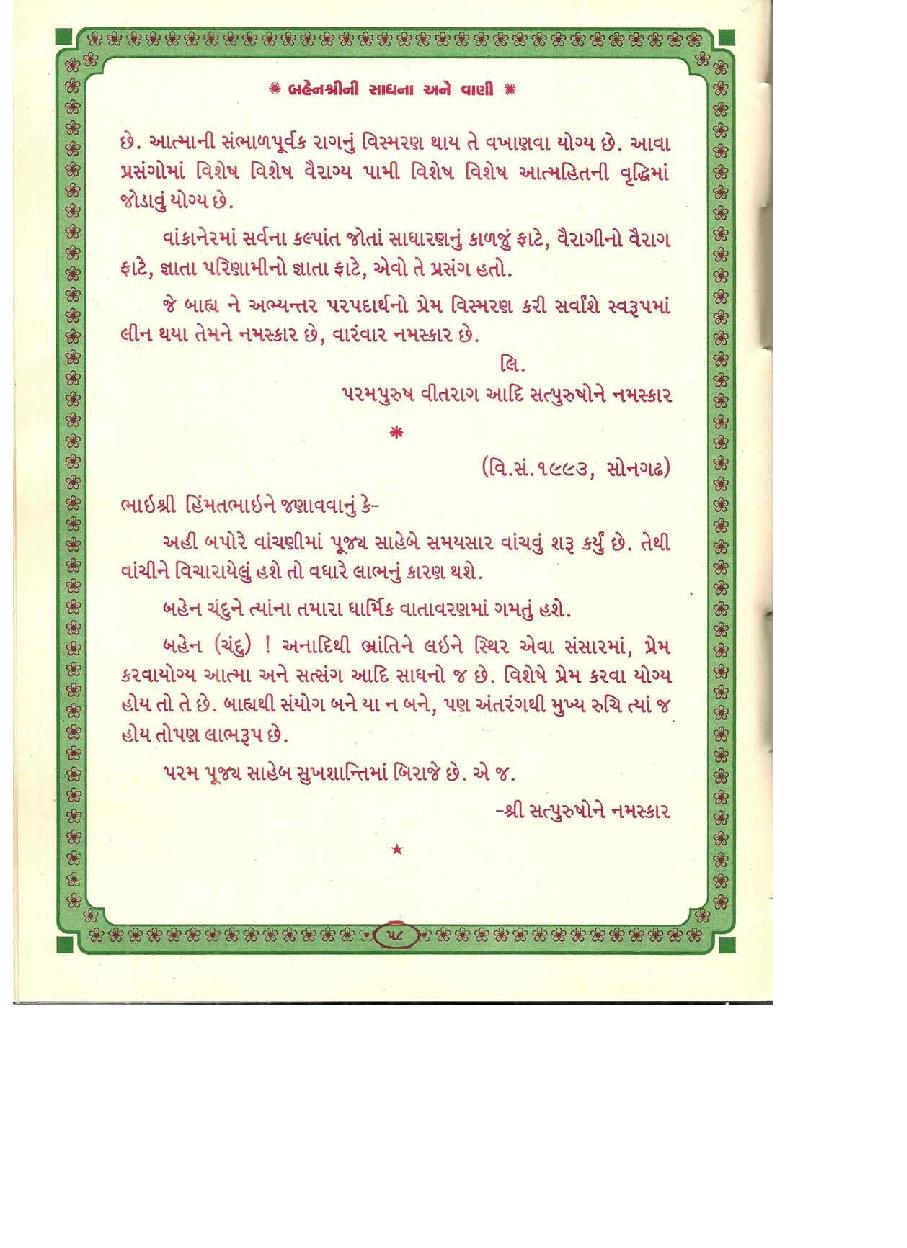 ❋ બહેનશ્રીની સાધના અને વાણી ❋
છે. આત્માની સંભાળપૂર્વક રાગનું વિસ્મરણ થાય તે વખાણવા યોગ્ય છે. આવા
પ્રસંગોમાં વિશેષ વિશેષ વૈરાગ્ય પામી વિશેષ વિશેષ આત્મહિતની વૃદ્ધિમાં
જોડાવું યોગ્ય છે.
વાંકાનેરમાં સર્વના કલ્પાંત જોતાં સાધારણનું કાળજું ફાટે, વૈરાગીનો વૈરાગ
ફાટે, જ્ઞાતા પરિણામીનો જ્ઞાતા ફાટે, એવો તે પ્રસંગ હતો.
જે બાહ્ય ને અભ્યન્તર પરપદાર્થનો પ્રેમ વિસ્મરણ કરી સર્વાંશે સ્વરૂપમાં
લીન થયા તેમને નમસ્કાર છે, વારંવાર નમસ્કાર છે.
લિ.
પરમપુરુષ વીતરાગ આદિ સત્પુરુષોને નમસ્કાર
❋
(વિ.સં.૧૯૯૩, સોનગઢ)
ભાઇશ્રી હિંમતભાઇને જણાવવાનું કે-
અહી બપોરે વાંચણીમાં પૂજ્ય સાહેબે સમયસાર વાંચવું શરૂ કર્યું છે. તેથી
વાંચીને વિચારાયેલું હશે તો વધારે લાભનું કારણ થશે.
બહેન ચંદુને ત્યાંના તમારા ધાર્મિક વાતાવરણમાં ગમતું હશે.
બહેન (ચંદુ) ! અનાદિથી ભ્રાંતિને લઇને સ્થિર એવા સંસારમાં, પ્રેમ
કરવાયોગ્ય આત્મા અને સત્સંગ આદિ સાધનો જ છે. વિશેષે પ્રેમ કરવા યોગ્ય
હોય તો તે છે. બાહ્યથી સંયોગ બને યા ન બને, પણ અંતરંગથી મુખ્ય રુચિ ત્યાં જ
હોય તોપણ લાભરૂપ છે.
પરમ પૂજ્ય સાહેબ સુખશાન્તિમાં બિરાજે છે. એ જ.
-શ્રી સત્પુરુષોને નમસ્કાર
★
૫૮